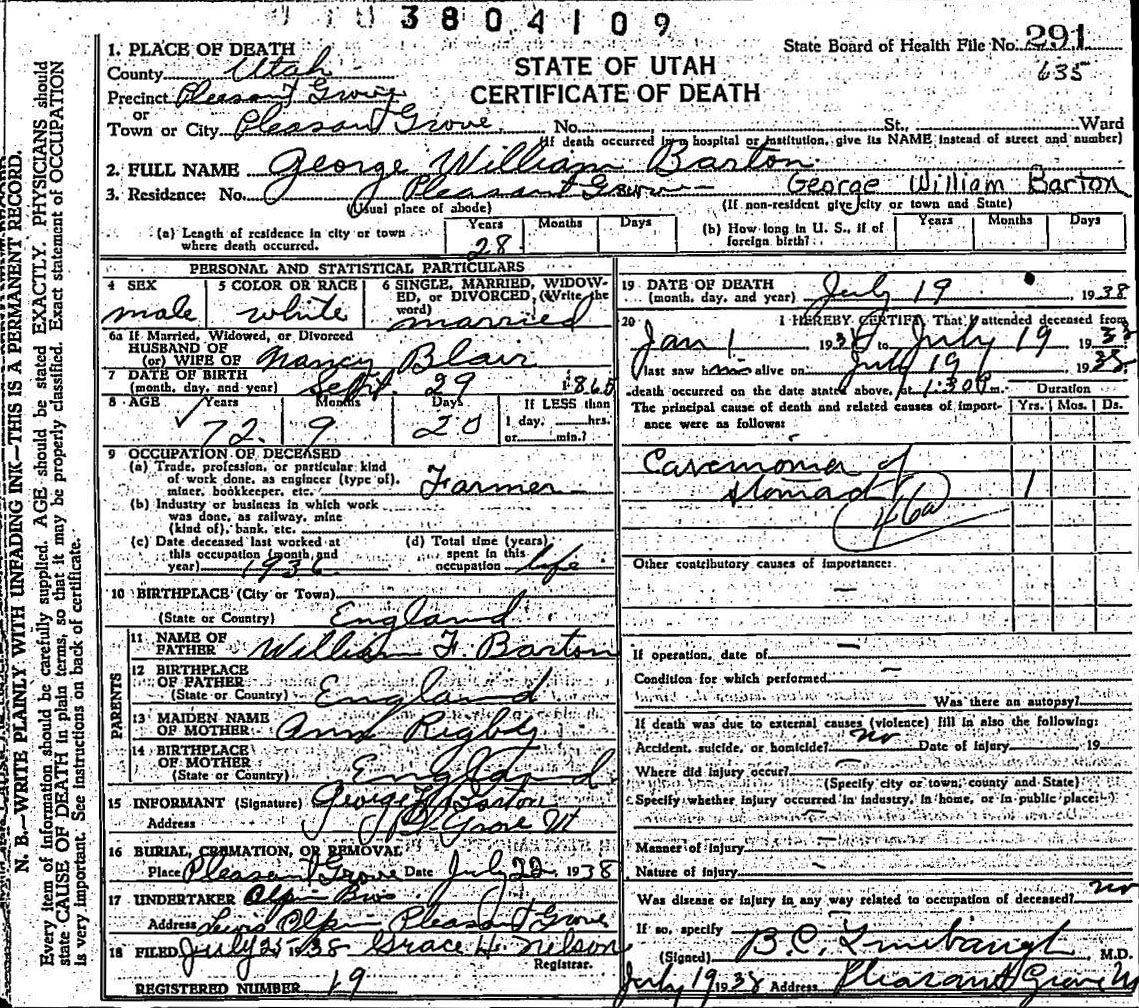 3804109
State Board of Health File No. 291
635
STATE OF UTAH
CERTIFICATE OF DEATH
1. PLACE OF DEATH
County Utah
Precinct Pleasant Grove
or
Town or City Pleasant Grove No. St., Ward
(If death occurred in a hospital or institution, give its NAME instead of street and number)
2. FULL NAME George William Barton
3. Residence: No. Pleasant Grove George William Barton
(Usual place of abode) (If non-resident give city or town and State)
(a) Length of residence in city or town where death occurred. Years 28 Months Days
(b) How long in U. S., if of foreign birth? Years Months Days
PERSONAL AND STATISTICAL PARTICULARS
4 SEX male
5 COLOR OR RACE white
6 SINGLE, MARRIED, WIDOWED, or DIVORCED, (Write the word) married
6a If Married, Widowed, or Divorced
HUSBAND OF
(or) WIFE OF Nancy Blair
7 DATE OF BIRTH
(month, day, and year) Sept. 29 1865
8 AGE Years 72 Months 9 Days 20 If LESS than 1 day, hrs. or min.?
9 OCCUPATION OF DECEASED
(a) Trade, profession, or particular kind of work done, as engineer (type of), miner, bookkeeper, etc. Farmer
(b) Industry or business in which work was done, as railway, mine (kind of), bank, etc.
(c) Date deceased last worked at this occupation (month and year) 1936
(d) Total time (years) spent in this occupation life
10 BIRTHPLACE (City or Town)
(State or Country) England
PARENTS
11 NAME OF FATHER William F. Barton
12 BIRTHPLACE OF FATHER
(State or Country) England
13 MAIDEN NAME OF MOTHER Ann Rigby
14 BIRTHPLACE OF MOTHER
(State or Country) England
15 INFORMANT (Signature) George Barton
Address Pl. Grove Ut
16 BURIAL, CREMATION, OR REMOVAL
Place Pleasant Grove Date July 22 1938
17 UNDERTAKER Olpin Bros
Address Lewis Olpin Pleasant Grove
18 FILED July 25 1938 Grace H. Nelson
Registrar.
REGISTERED NUMBER 19
19 DATE OF DEATH
(month, day, and year) July 19 1938
20 I HEREBY CERTIFY, That I attended deceased from
Jan 1 193 to July 19 193
I last saw alive on July 19 1938
death occurred on the date stated above, at 1:30 m.
The principal cause of death and related causes of importance were as follows:
Duration
Yrs. Mos. Ds.
Carcinoma of
stomach 1
46a
Other contributory causes of importance:
If operation, date of
Condition for which performed
Was there an autopsy?
If death was due to external causes (violence) fill in also the following:
Accident, suicide, or homicide? no Date of injury 19
Where did injury occur?
(Specify city or town, county and State)
Specify whether injury occurred in industry, in home, or in public place:
Manner of injury
Nature of injury
Was disease or injury in any way related to occupation of deceased? no
If so, specify
(Signed) B.C. Linebaugh M.D.
July 19 1938 Address Pleasant Grove Ut
N. B.—WRITE PLAINLY WITH UNFADING INK—THIS IS A PERMANENT RECORD.
Every item of information should be carefully supplied. AGE should be stated EXACTLY. PHYSICIANS should
state CAUSE OF DEATH in plain terms, so that it may be properly classified. Exact statement of OCCUPATION
is very important. See instructions on back of certificate.